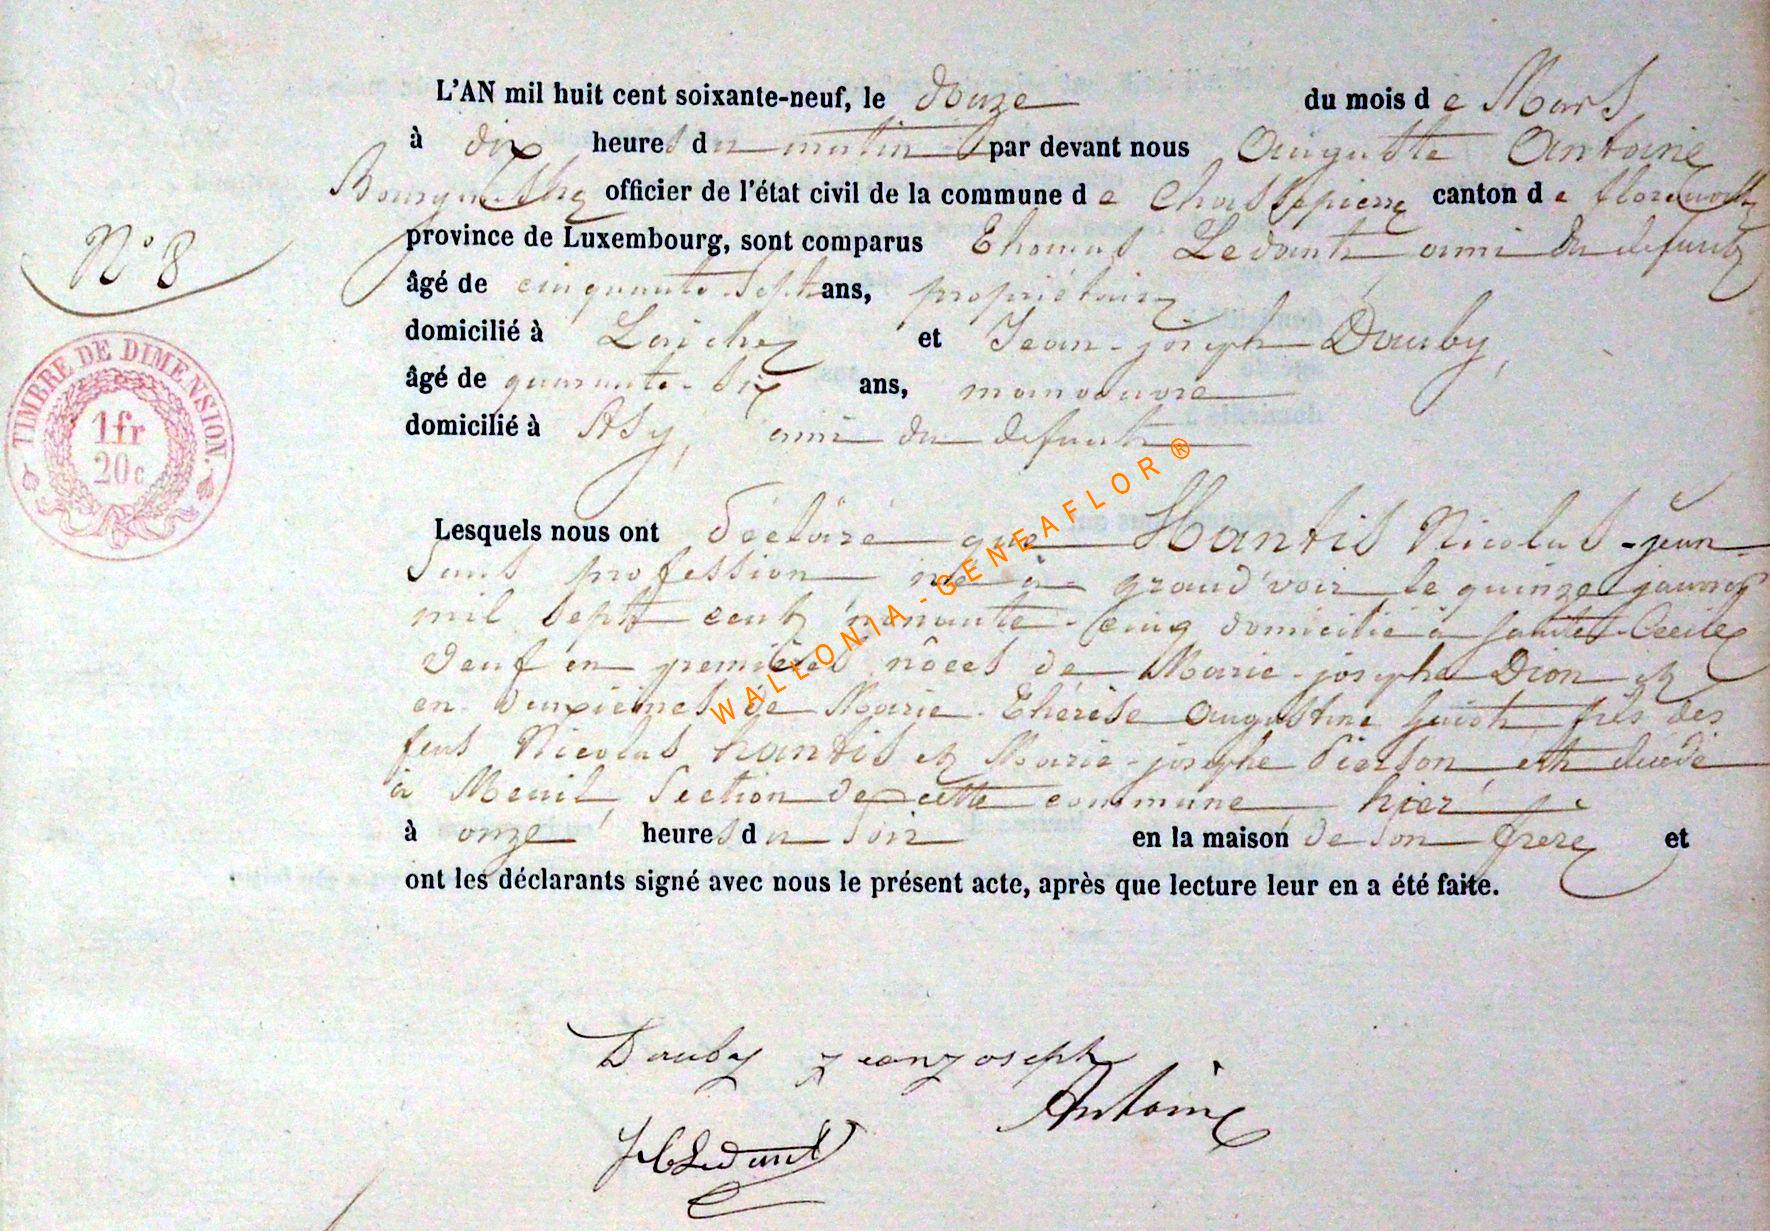 L'AN mil huit cent soixante-neuf, le douze du mois de Mars
à dix heures du matin par devant nous Auguste Antoine
Bourgmestre officier de l'état civil de la commune de Chassepierre canton de florenville
province de Luxembourg, sont comparus Thomas Ledant ami du defunt
N° 8
âgé de cinquante-sept ans, propriétaire
domicilié à Laiche et Jean-joseph Dauby,
âgé de quarante-six ans, manoeuvre
domicilié à Azy, ami du defunt
TIMBRE DE DIMENSION.
1fr
20c
Lesquels nous ont déclaré que Hantis Nicolas-jean
sans profession né à grand'voir le quinze janvier
mil sept cent nonante-cinq domicilié à Sainte-Cecile
veuf en premières nôces de Marie-josephe Dion et
en deuxièmes de Marie-Thérèse Augustine fils des
feus Nicolas hantis et Marie-josephe Pierson, est décédé
à Menil, Section de cette commune, hier
à onze heures du soir en la maison de son frere et
ont les déclarants signé avec nous le présent acte, après que lecture leur en a été faite.
WALLONIA-GENEAFLOR ®
Dauby jean joseph
Antoine
Ledant